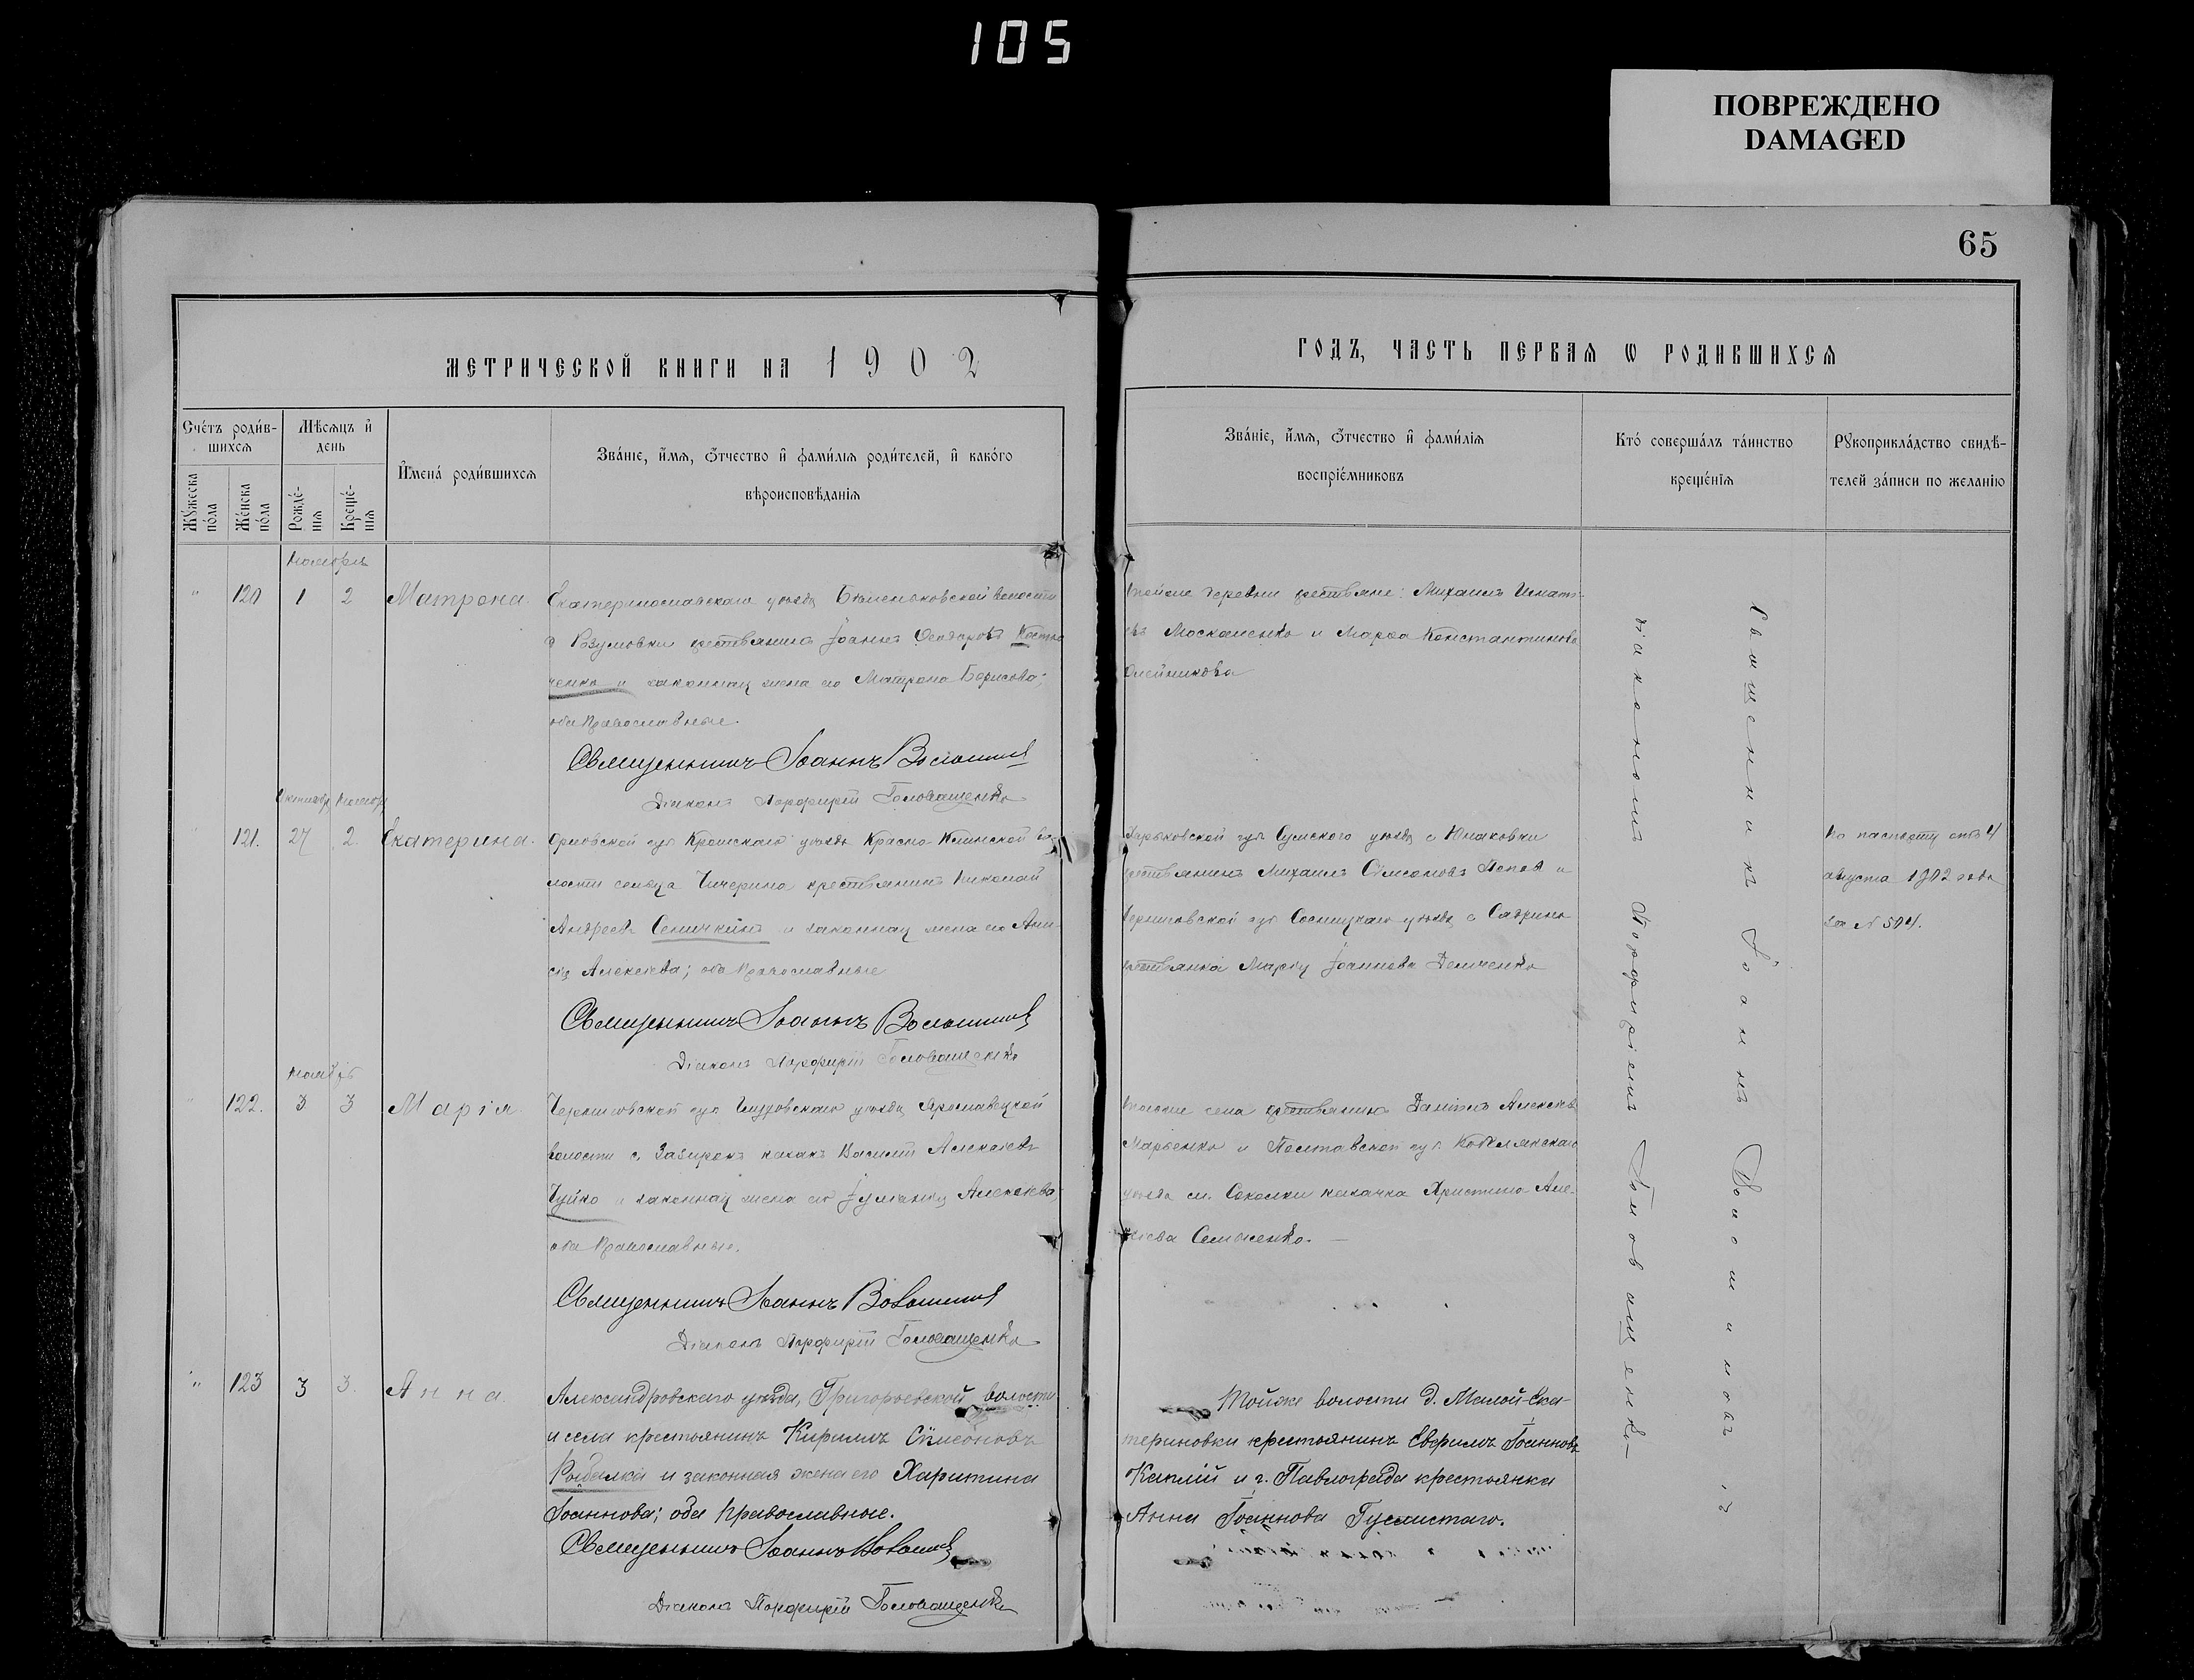 105
ПОВРЕЖДЕНО
DAMAGED
65
МЕТРИЧЕСКОЙ КНИГИ НА 1902
ГОДЪ, ЧАСТЬ ПЕРВАЯ Ѡ РОДИВШИХСЯ
Счётъ родив-
шихся
Мѣсяцъ и
день
Имена родившихся
Званіе, имя, отчество и фамилія родителей, и какого
вѣроисповѣданія
Мужеска
пола
Женска
пола
Рожде-
нія
Креще-
нія
Званіе, имя, отчество и фамилія
воспріемниковъ
Кто совершалъ таинство
крещенія
Рукоприкладство свидѣ-
телей записи по желанію
Ноября
" 120 1 2 Матрона.
Екатеринославскаго уѣзда волости
Разумовки крестьянинъ Іоаннъ
ченко и законная жена его Матрона Борисова;
оба Православные.
Священникъ Іоаннъ Волошиновъ
Діаконъ Порфирій Головащенко
деревни крестьяне: Михаилъ Игнать-
евъ Москаленко и Марѳа Константинова
Олейникова
Октября Ноября
121. 27 2. Екатерина.
Орловской губ Кромскаго уѣзда Красно-Клинской во-
лости сельца Чичерина крестьянинъ Николай
Андреевъ Сеничкинъ и законная жена его Ани-
сія Алексѣева; оба Православные
Священникъ Іоаннъ Волошиновъ
Діаконъ Порфирій Головащенко
Харьковской губ Сумского уѣзда с Юнаковки
крестьянинъ Михаилъ Сѵмеоновъ Попов и
Черниговской губ Сосницкаго уѣзда с
крестьянка Марія Іоаннова Демченко
По паспорту отъ 4
августа 1902 года
за № 504.
Ноябрь
122. 3 3 Марія
Черниговской губ Глуховскаго уѣзда Ярославецкой
волости с. Зазирокъ казакъ Василій Алексѣевъ
Чуйко и законная жена его Іуліанія Алексѣева;
оба Православные.
Священникъ Іоаннъ Волошиновъ
Діаконъ Порфирій Головащенко
села крестьянинъ Даніилъ Алексѣевъ
Марченко и Полтавской губ. Кобелякскаго
уѣзда м. Соколки казачка Христина Але-
ксѣева Семененко.
" 123 3 3. Анна
Александровскаго уѣзда, Григорьевской волости
и села крестьянинъ Кириллъ Сѵмеоновъ
Рыбалка и законная жена его Харитина
Іоаннова; оба Православные.
Священникъ Іоаннъ Волошиновъ
Діаконъ Порфирій Головащенко
Тойже волости д. Малой-Ека-
териновки крестьянинъ Евфимъ Іоанновъ
Каплій и г. Павлограда крестьянка
Анна Іоаннова Гусаистаго.
Священникъ Іоаннъ Волошиновъ съ
діакономъ Порфиріемъ Головащенко